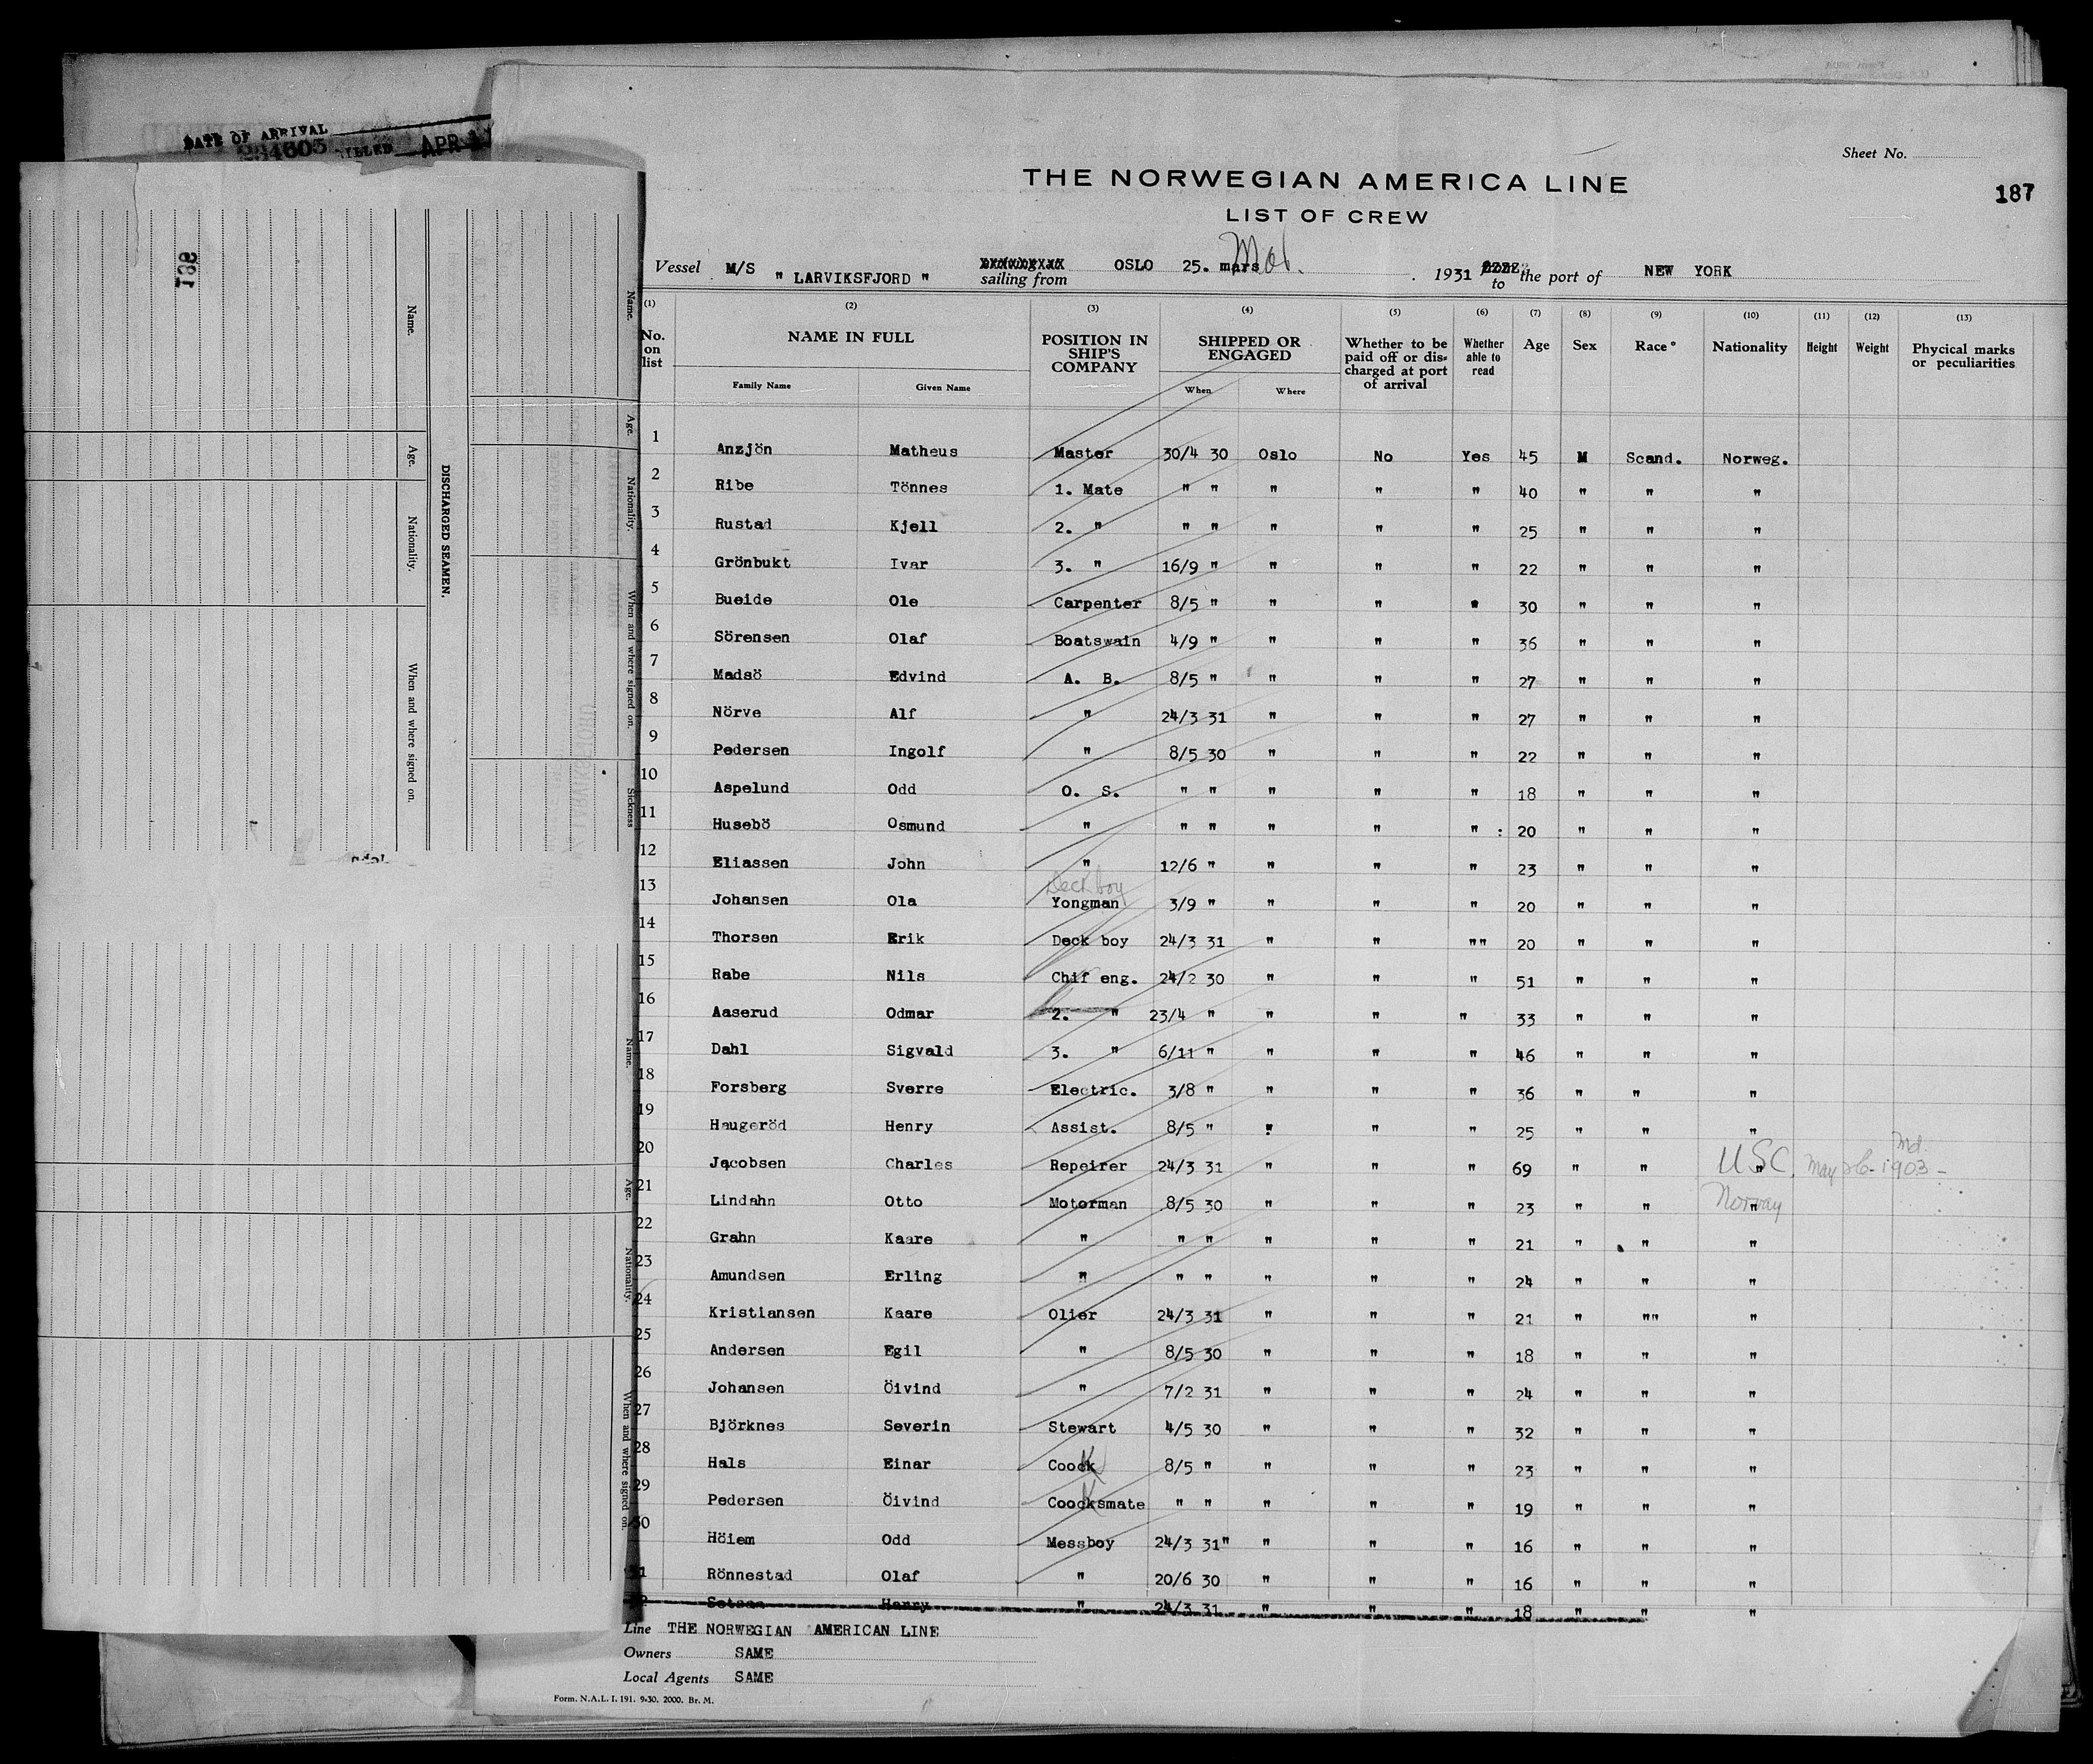 DATE OF ARRIVAL
APR
Sheet No.
THE NORWEGIAN AMERICA LINE
187
LIST OF CREW
Vessel M/S " LARVIKSFJORD " sailing from OSLO 25. mars 1931 to the port of NEW YORK
(1) (2) (3) (4) (5) (6) (7) (8) (9) (10) (11) (12) (13)
No. on list NAME IN FULL POSITION IN SHIP'S COMPANY SHIPPED OR ENGAGED Whether to be paid off or discharged at port of arrival Whether able to read Age Sex Race* Nationality Height Weight Phycical marks or peculiarities
Family Name Given Name When Where
1 Anzjön Matheus Master 30/4 30 Oslo No Yes 45 M Scand. Norweg.
2 Ribe Tönnes 1. Mate " " " " " 40 " " "
3 Rustad Kjell 2. " " " " " " 25 " " "
4 Grönbukt Ivar 3. " 16/9 " " " " 22 " " "
5 Bueide Ole Carpenter 8/5 " " " " 30 " " "
6 Sörensen Olaf Boatswain 4/9 " " " " 36 " " "
7 Madsö Edvind A. B. 8/5 " " " " 27 " " "
8 Nörve Alf " 24/3 31 " " " 27 " " "
9 Pedersen Ingolf " 8/5 30 " " " 22 " " "
10 Aspelund Odd O. S. " " " " " 18 " " "
11 Husebö Osmund " " " " " " : 20 " " "
12 Eliassen John " 12/6 " " " " 23 " " "
Deck boy
13 Johansen Ola Yongman 3/9 " " " " 20 " " "
14 Thorsen Erik Deck boy 24/3 31 " " "" 20 " " "
15 Rabe Nils Chif eng. 24/2 30 " " " 51 " " "
16 Aaserud Odmar 2. " 23/4 " " " " 33 " " "
17 Dahl Sigvald 3. " 6/11 " " " " 46 " " "
18 Forsberg Sverre Electric. 3/8 " " " " 36 " " "
19 Haugeröd Henry Assist. 8/5 " " " " 25 " " "
20 Jacobsen Charles Repeirer 24/3 31 " " " 69 " " " USC. May 26-1903- Md.
21 Lindahn Otto Motorman 8/5 30 " " " 23 " " " Norway
22 Grahn Kaare " " " " " " 21 " " "
23 Amundsen Erling " " " " " " 24 " " "
24 Kristiansen Kaare Olier 24/3 31 " " " 21 " "" "
25 Andersen Egil " 8/5 30 " " " 18 " " "
26 Johansen Öivind " 7/2 31 " " " 24 " " "
27 Björknes Severin Stewart 4/5 30 " " " 32 " " "
28 Hals Einar Coock 8/5 " " " " 23 " " "
29 Pedersen Öivind Coocksmate " " " " " 19 " " "
30 Höiem Odd Messboy 24/3 31" " " " 16 " " "
31 Rönnestad Olaf " 20/6 30 " " " 16 " " "
Henry " 24/3 31 " " " 18 " " "
Line THE NORWEGIAN AMERICAN LINE
Owners SAME
Local Agents SAME
Form. N.A.L. I. 191. 9-30. 2000. Br. M.
188
DISCHARGED SEAMEN.
Name. Age. Nationality. When and where signed on.
Name. Age. Nationality. When and where signed on. Sickness
Name. Age. Nationality. When and where signed on.
John